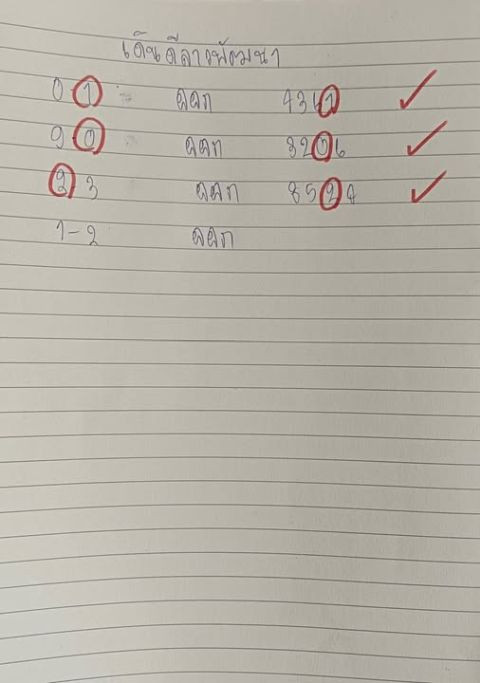 เด่นดีลาวพัฒนา
0 1 = ออก 4361
9 0 ออก 3206
2 3 ออก 8524
1-2 ออก